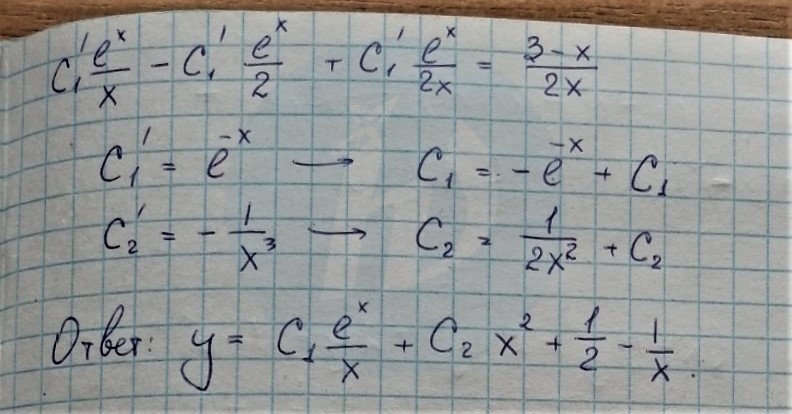 C₁' eˣ/x − C₁' eˣ/2 + C₁' eˣ/2x = 3−x/2x
C₁' = e⁻ˣ → C₁ = −e⁻ˣ + C₁
C₂' = −1/x³ → C₂ = 1/2x² + C₂
Ответ: y = C₁ eˣ/x + C₂ x² + 1/2 − 1/x.